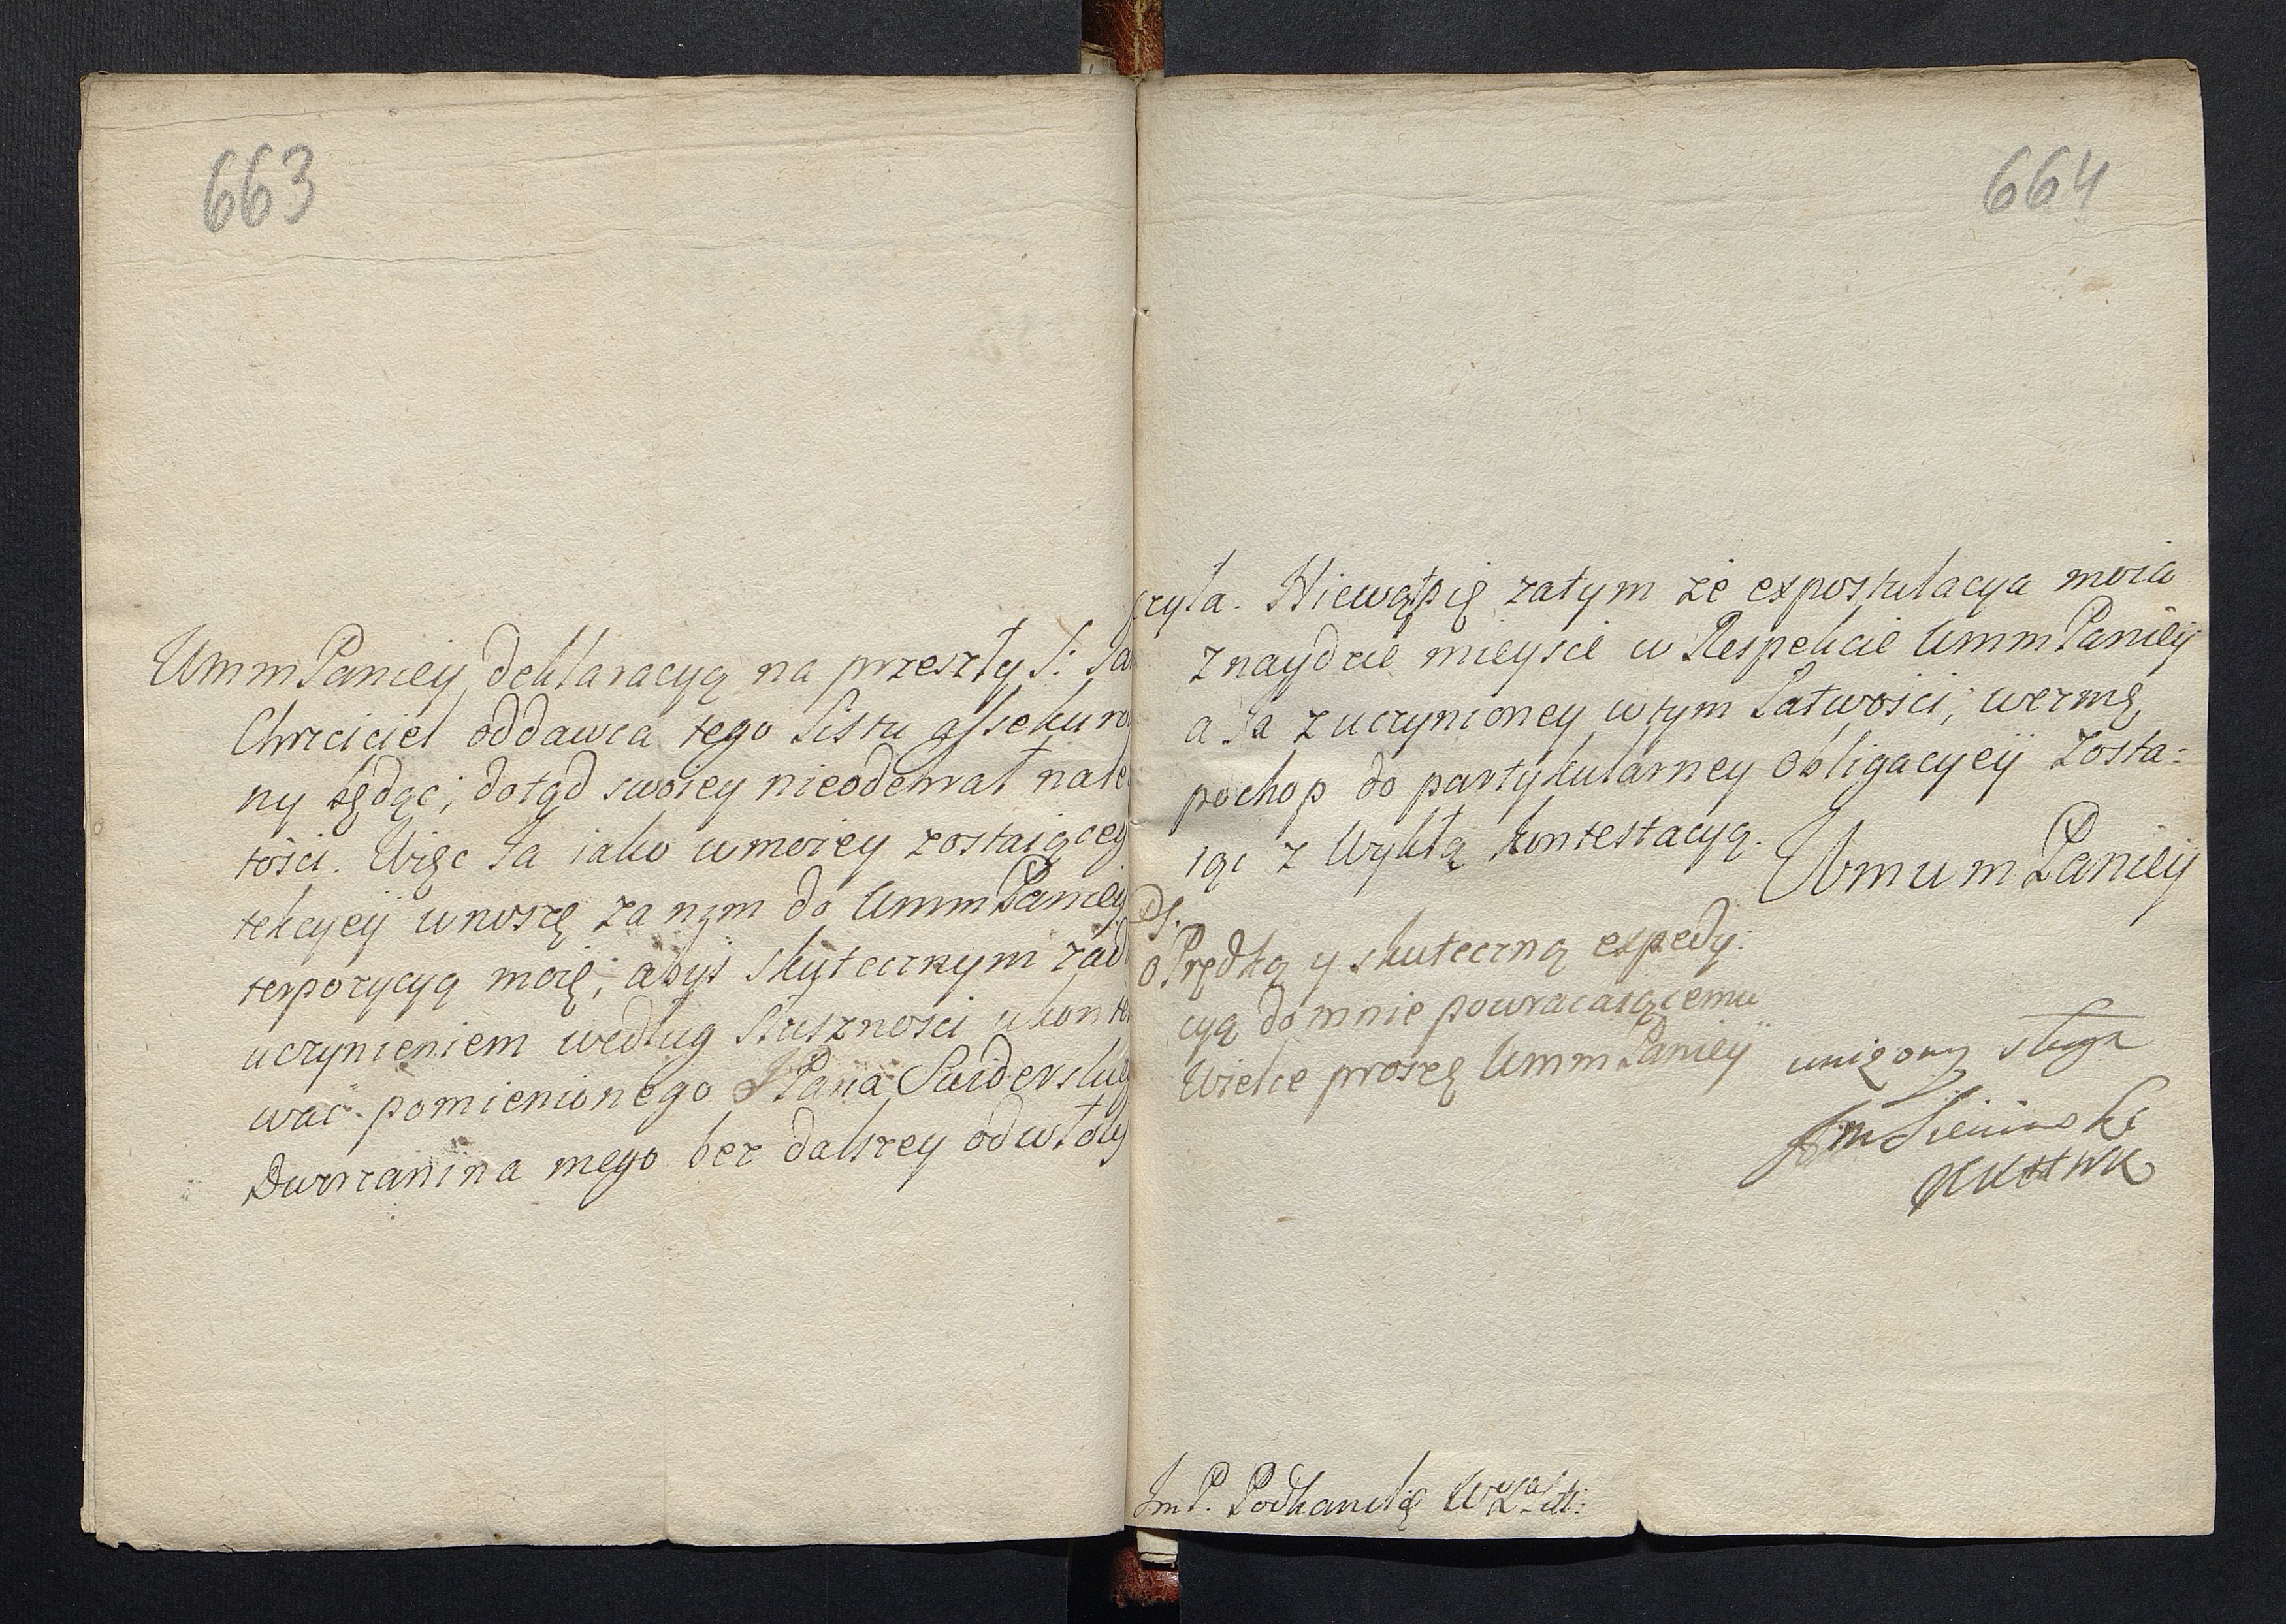 663
UmmPaniey deklaracyą na przeszły S: Ja
Chrciciel oddawca tego Listu assekuro
ny będąc; dotąd swoiey nieodebrał nale
tości. Więc Ja iako w moiey zostaiącey
tekcyey wnoszę za nym do UmmPaniey
terpozycyą moię; abyś skutecznym zad
uczynieniem według słuszności ukonte
wać pomienionego Pana Swiderskieg
Dworzanina mego bez dalszey odwłoky
664
czyła. Niewątpię zatym że expostulacya moia
znaydzie mieysce w Respekcie UmmPaniey
a Ja z uczynioney w tym Łatwości; wezmę
pochop do partykularney obligacyey zosta:
iąc z Wykłą kontestacyą.
WmummPaniey
Ps.
o Prędką y skuteczną expedy:
cyą do mnie powracaiącemu
Wielce proszę UmmPaniey
uniżony sługa
Im P. Podkanclię